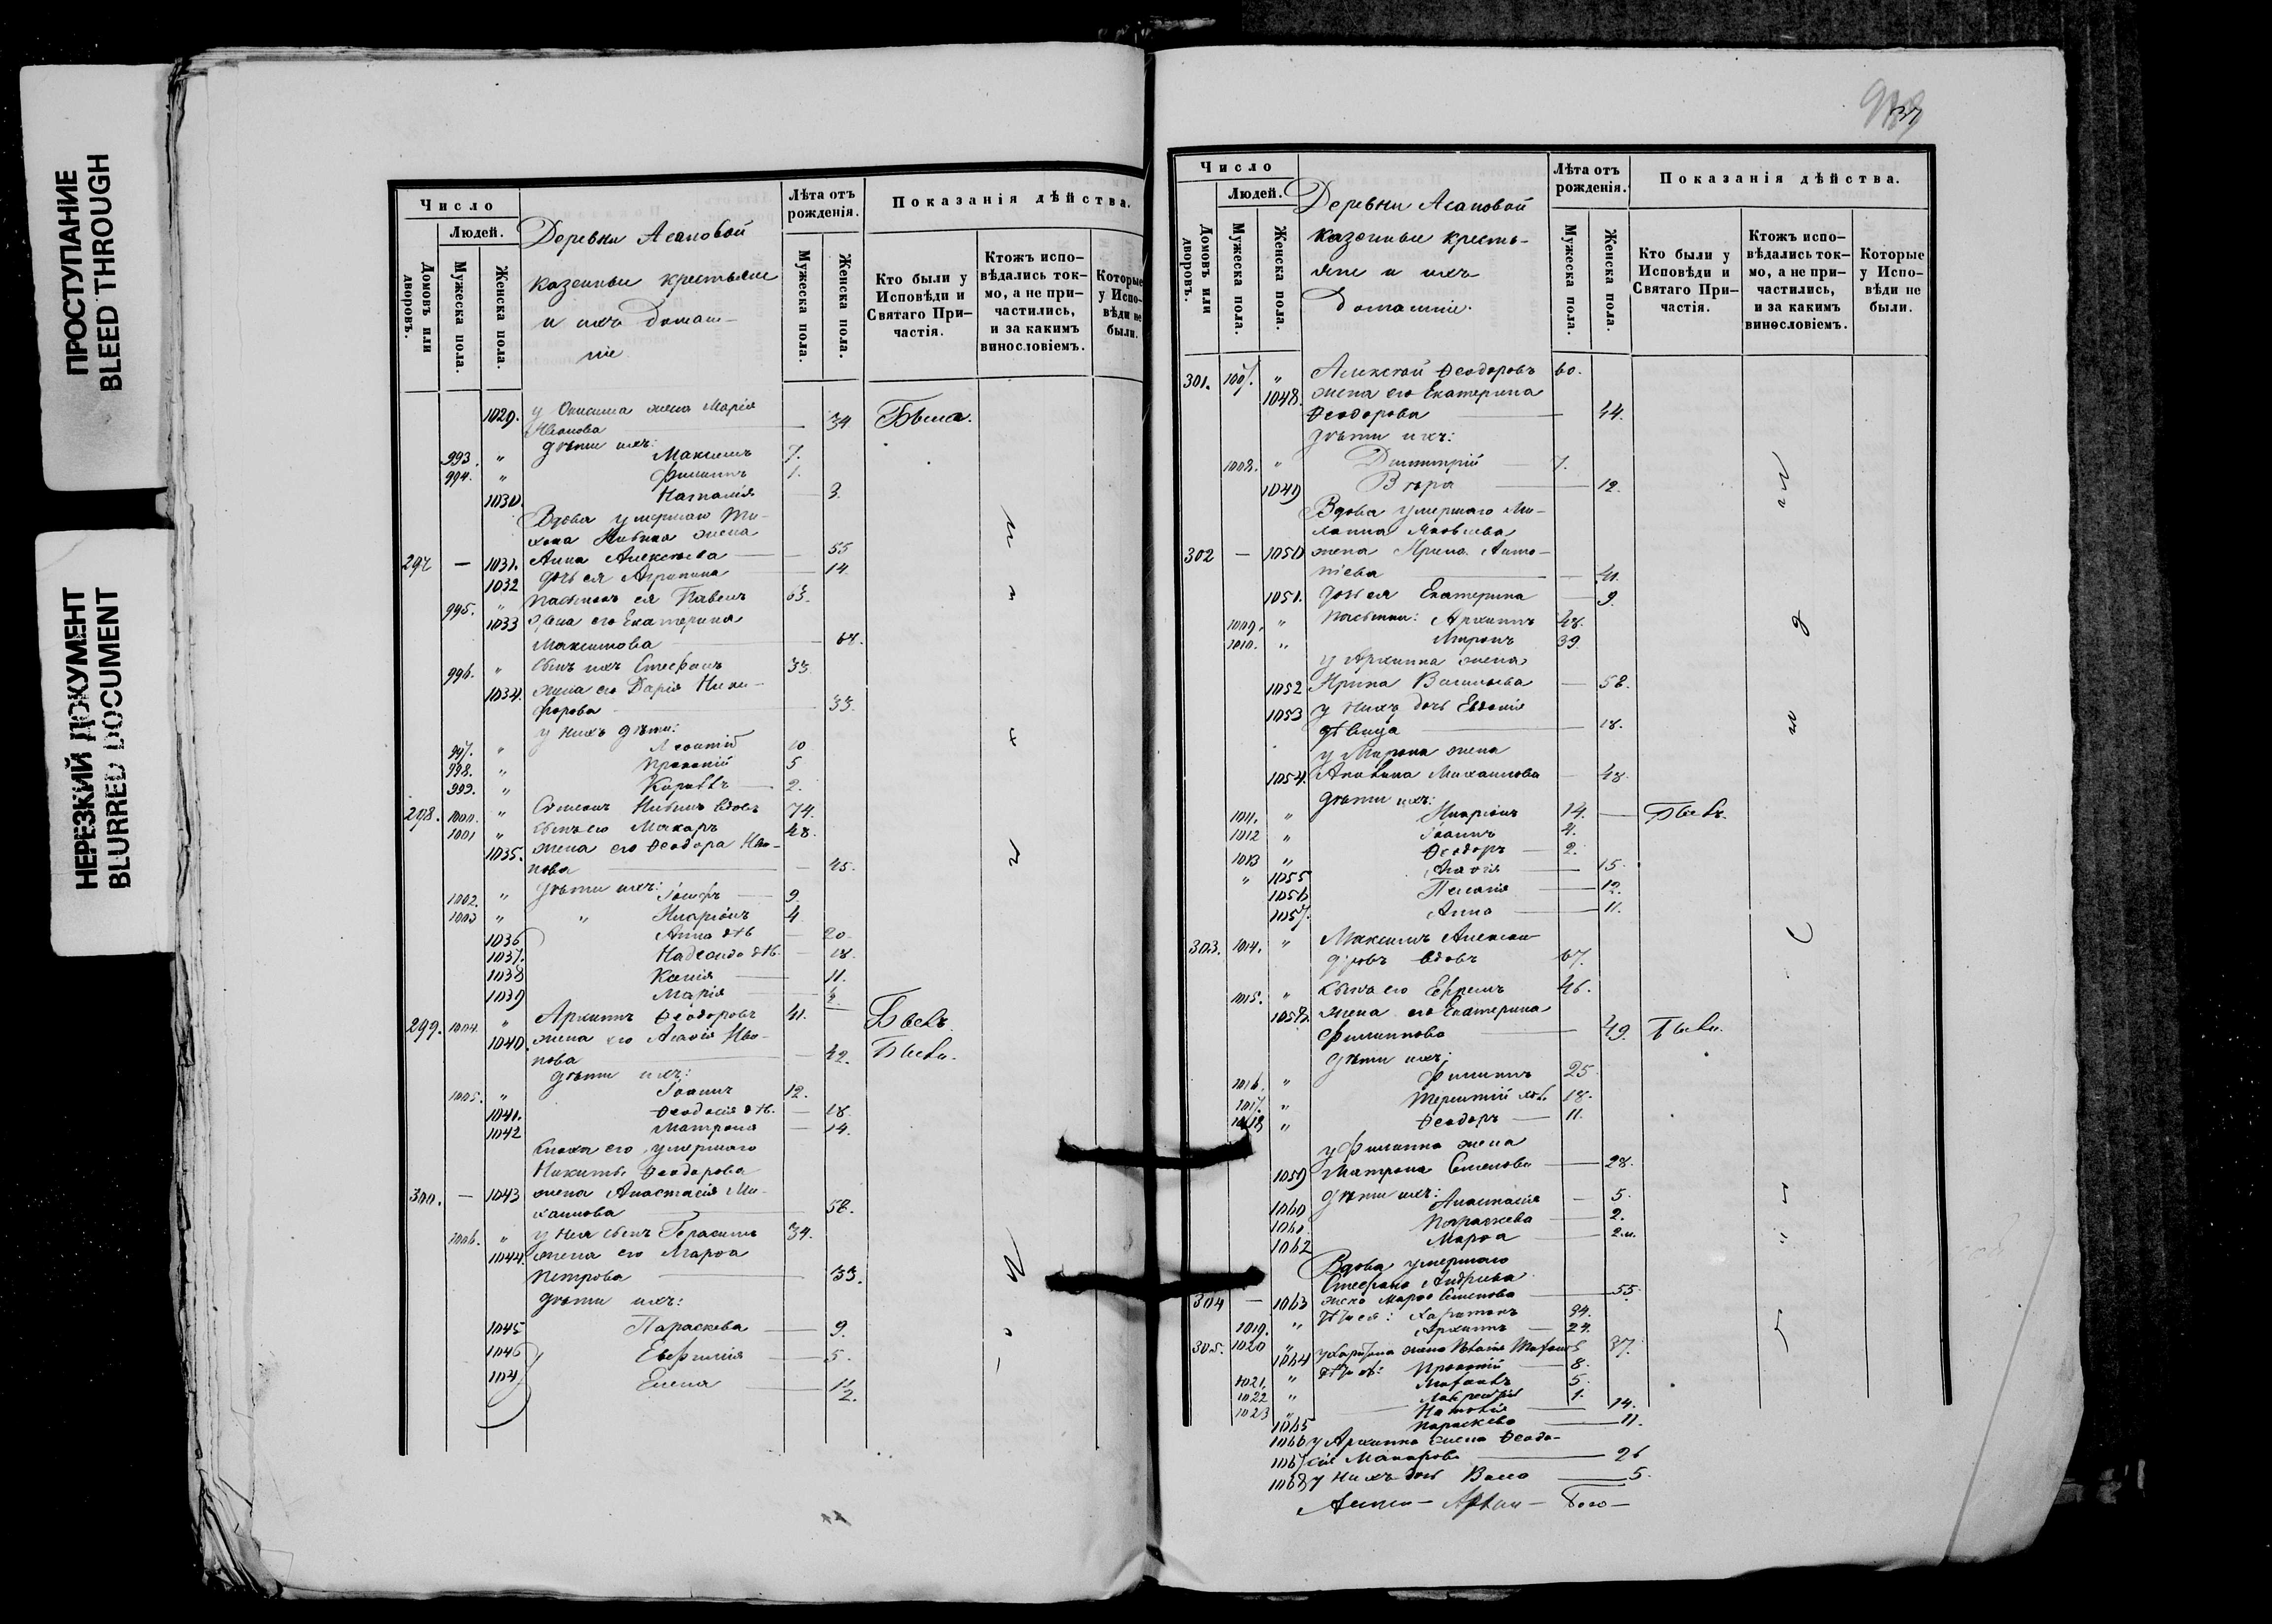 ПРОСТУПАНИЕ
BLEED THROUGH
НЕРЕЗКИЙ ДОКУМЕНТ
BLURRED DOCUMENT
Число
Людей.
Домовъ или дворовъ.
Мужеска пола.
Женска пола.
Деревни Асановой
казенные крестьяне
и ихъ домаш-
ніе.
Лѣта отъ рожденія.
Мужеска пола.
Женска пола.
Показанія дѣйства.
Кто были у Исповѣди и Святаго При-частія.
Ктожъ испо-вѣдались ток-мо, а не при-частились, и за какимъ винословіемъ.
Которые у Испо-вѣди не были.
1029. у Онисима жена Марія
Иванова 34 Была.
дѣти ихъ:
993. " Максимъ 7.
994. " Филиппъ 1.
1030. Наталія 3.
Вдова умершаго Ти-
хона жена
297 — 1031. Анна Алексѣева 55
1032 дочь ея Агрипина 14
995. " пасынокъ ея Павелъ 63.
1033 жена его Екатерина
Максимова 64.
996. " сынъ ихъ Стефанъ 33
1034. жена его Дарія Ники-
форова 33.
у нихъ дѣти:
997. " Леонтій 10
998. " Прокопій 5
999. " 2.
298. 1000. " вдовъ 74.
1001 " сынъ его Макаръ 48.
1035. жена его Ѳеодора Ива-
нова 45.
дѣти ихъ:
1002. " Іосифъ 9
1003 " " Иларіонъ 4
1036 Анна дѣв 20
1037. Надежда дѣв. 18.
1038 Ксенія 11.
1039 Марія
299. 1004. " Архипъ Ѳеодоровъ 41. Былъ.
1040. жена его Агафія Ива-
нова 42. Были.
дѣти ихъ:
1005. " Іоаннъ 12.
1041. Ѳеодосія дѣв. 18.
1042 Матрона 14.
Сноха его умершаго
Никиты Ѳеодорова
300. — 1043 жена Анастасія Ми-
хаилова 58.
1006. " у нея сынъ Герасимъ 34.
1044. жена его Марѳа
Петрова 33.
дѣти ихъ:
1045 Параскева 9.
1046 Евфимія 5.
104 Елена 1/2.
Число
Людей.
Домовъ или дворовъ.
Мужеска пола.
Женска пола.
Деревни Асановой
казенные кресть-
яне и ихъ
домашніе.
Лѣта отъ рожденія.
Мужеска пола.
Женска пола.
Показанія дѣйства.
Кто были у Исповѣди и Святаго При-частія.
Ктожъ испо-вѣдались ток-мо, а не при-частились, и за какимъ винословіемъ.
Которые у Испо-вѣди не были.
301. 1007. " Алексѣй Ѳеодоровъ 60.
1048. жена его Екатерина
Ѳеодорова 44.
дѣти ихъ:
1008. " Димитрій 7.
1049 Вѣра 12.
Вдова умершаго
302 — 1050 жена Ирина
41.
1051. дочь ея Екатерина 9.
1009. " пасынки: Архиппъ 48.
1010. " Миронъ 39.
у Архиппа жена
1052 Ирина Васильева 58.
1053 у нихъ дочь Евдокія
дѣвица 18.
у Мирона жена
1054. Акилина Михаилова 48.
дѣти ихъ:
1011. " Иларіонъ 14. Былъ.
1012 " Іоаннъ 4.
1013 " Ѳеодоръ 2.
" 1055 Агафія 15.
1056 Пелагія 12.
1057. Анна 11.
303. 1014. " Максимъ Алексан-
дровъ вдовъ 67.
1015. " сынъ его Ефремъ 46.
1058. жена его Екатерина
Филиппова 49. Были.
дѣти ихъ:
1016. " Филиппъ 25
1017. " Терентій хол. 18.
1018 " Ѳеодоръ 11.
у Филиппа жена
1059 Матрона Семенова 28.
дѣти ихъ:
1060 Анастасія 5.
1061. Параскева 2.
1062 Марѳа 2 м.
Вдова умершаго
Стефана Андреева
304 — 1063 жена Марѳа Семенова 55.
1019. " дѣти ея: Харитонъ 34.
305. 1020 " Архиппъ 24.
1064 у Харитона жена 37.
1021. " дѣти ихъ: Прокопій 8.
1022 " 5.
1023 " 1.
1065 Наталія 14.
1066 Параскева 11.
у Архиппа жена Ѳеодо-
1067 сія Макарова 26
1068 у нихъ дочь Васса 5.